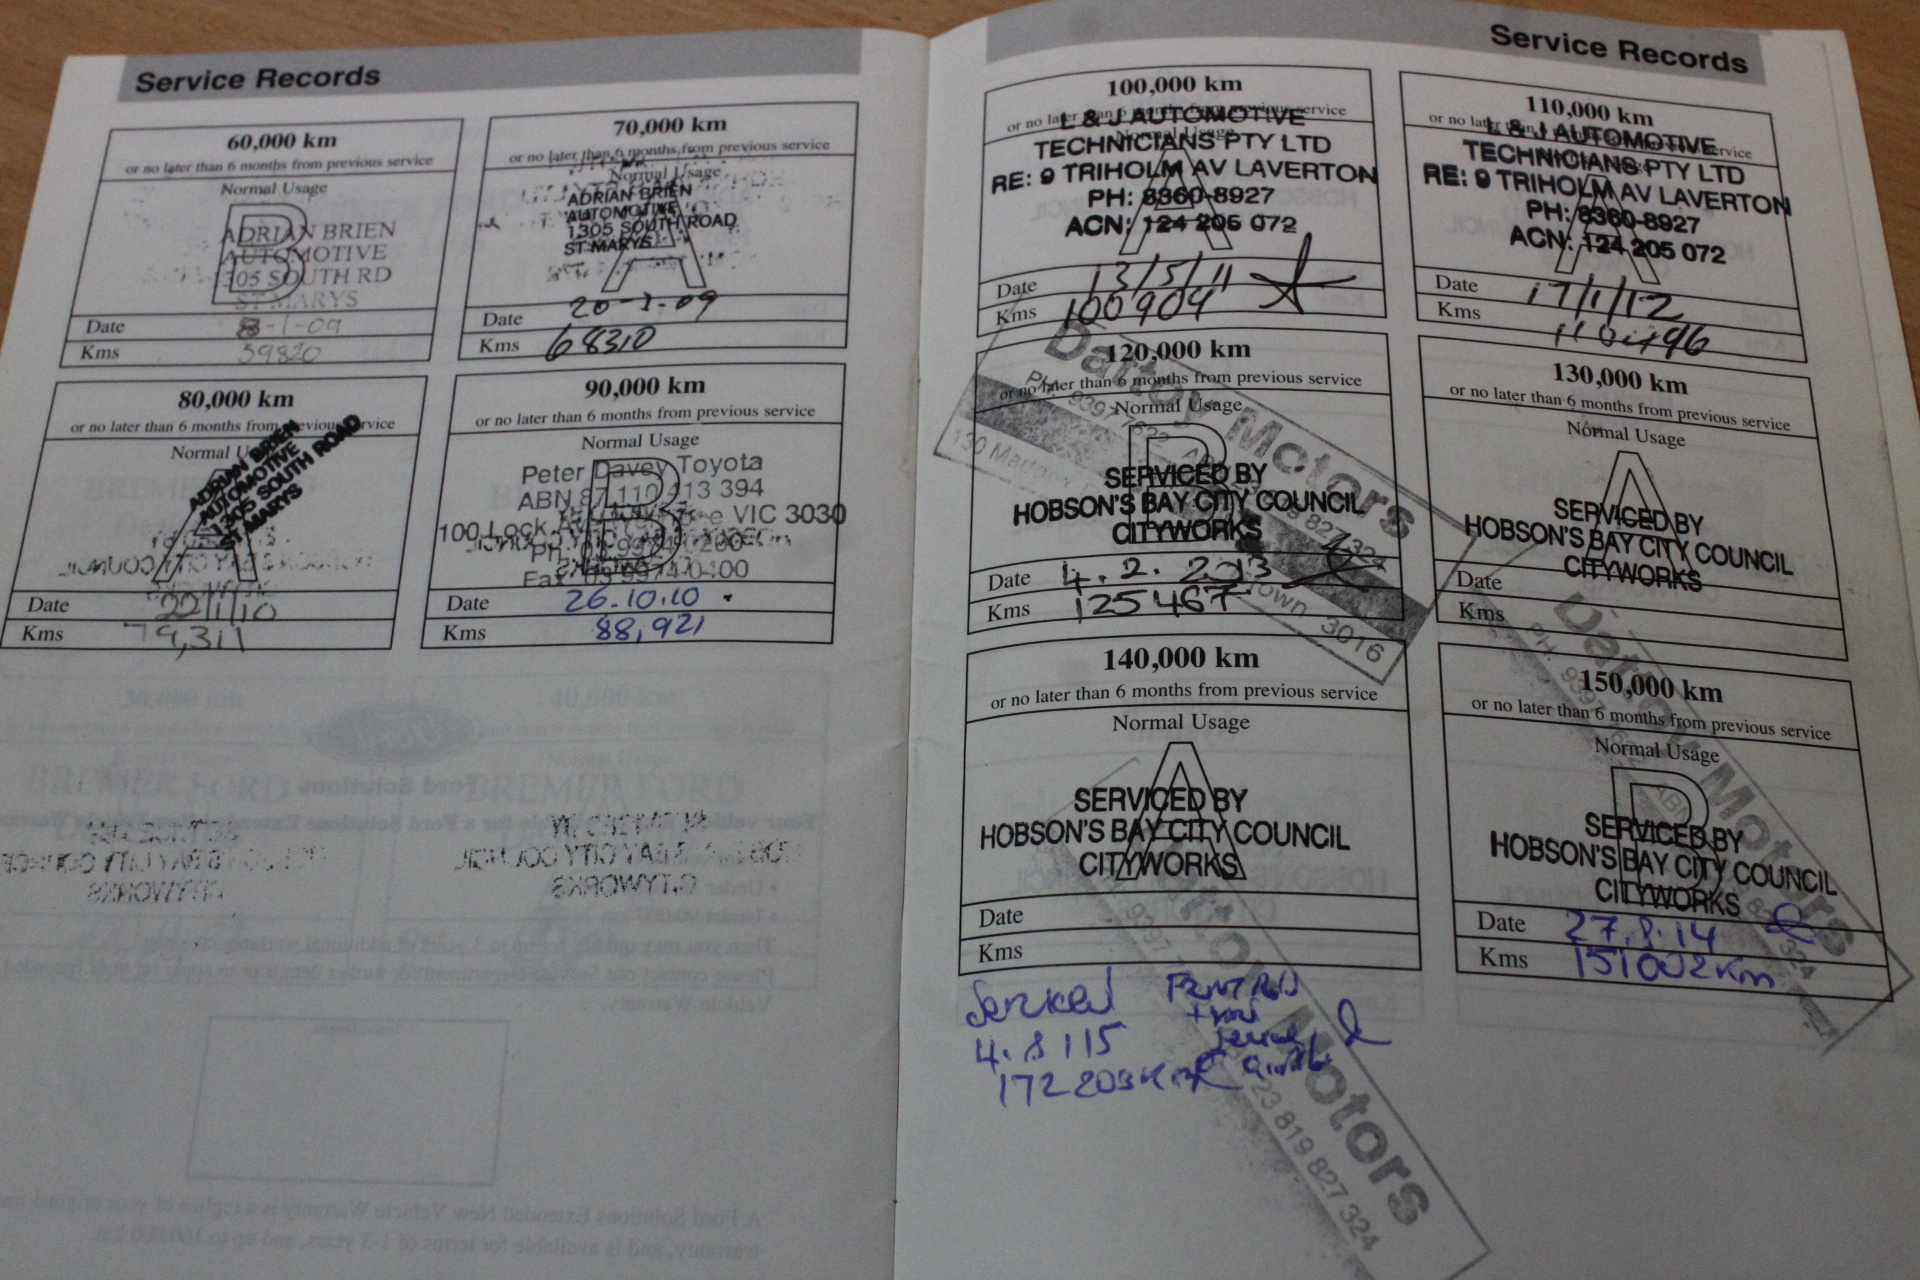 Service Records
60,000 km
or no later than 6 months from previous service
Normal Usage
B
ADRIAN BRIEN
AUTOMOTIVE
1305 SOUTH RD
ST MARYS
Date 8-1-09
Kms 59820
70,000 km
or no later than 6 months from previous service
Normal Usage
A
ADRIAN BRIEN
AUTOMOTIVE
1305 SOUTH ROAD
ST MARYS
Date
Kms 68310
80,000 km
or no later than 6 months from previous service
Normal
A
ADRIAN BRIEN
AUTOMOTIVE
1305 SOUTH ROAD
ST MARYS
Date 22/1/10
Kms 79,311
90,000 km
or no later than 6 months from previous service
Normal Usage
B
Peter Davey Toyota
ABN 87 110 413 394
100 Lock VIC 3030
Ph:
Fax
Date 26.10.10
Kms 88,921
Service Records
100,000 km
or no later than 6 months from previous service
Normal Usage
A
L & J AUTOMOTIVE
TECHNICIANS PTY LTD
RE: 9 TRIHOLM AV LAVERTON
PH: 8360-8927
ACN: 124 205 072
Date 13/5/11
Kms 100904
110,000 km
or no later than service
A
L & J AUTOMOTIVE
TECHNICIANS PTY LTD
RE: 9 TRIHOLM AV LAVERTON
PH: 8360-8927
ACN: 124 205 072
Date 17/1/12
Kms
120,000 km
or no later than 6 months from previous service
Normal Usage
B
SERVICED BY
HOBSON'S BAY CITY COUNCIL
CITYWORKS
Date 4.2.2013
Kms 125467
Motors
3016
130,000 km
or no later than 6 months from previous service
Normal Usage
A
SERVICED BY
HOBSON'S BAY CITY COUNCIL
CITYWORKS
Date
Kms
140,000 km
or no later than 6 months from previous service
Normal Usage
A
SERVICED BY
HOBSON'S BAY CITY COUNCIL
CITYWORKS
Date
Kms
150,000 km
or no later than 6 months from previous service
Normal Usage
B
SERVICED BY
HOBSON'S BAY CITY COUNCIL
CITYWORKS
Date 27.8.14
Kms 151002km
Motors
4.8.115
Motors
819 827 324